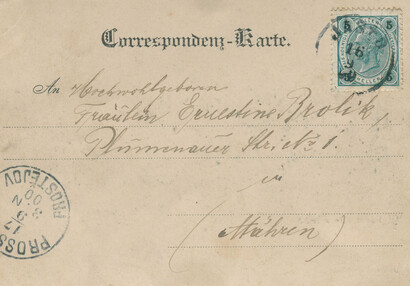 Correspondenz-Karte.
An Hochwohlgeboren
Fräulein Ernestine Brolik,
Plumenauer Str. No 1.
in
(Mähren)
5 5
HELLER
PROSS
PROSTĚJOV
17
9
00